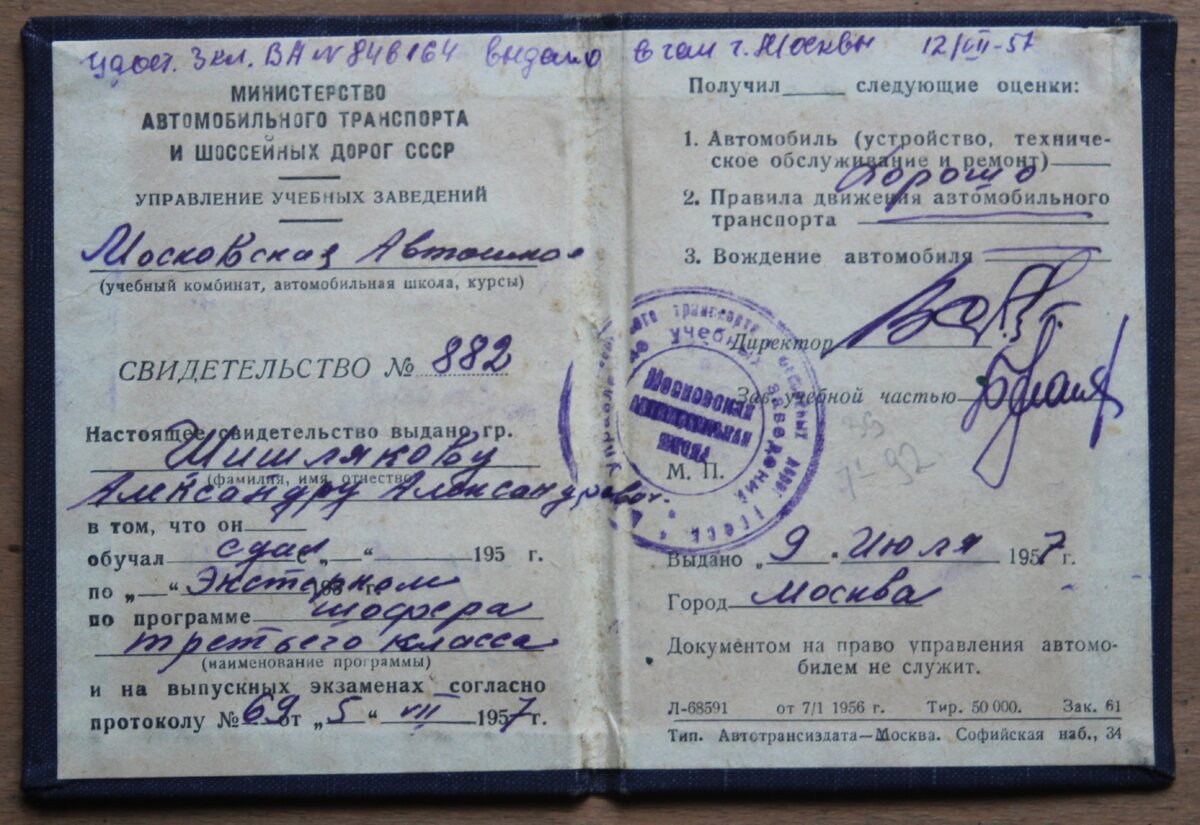 Удост. 3 кл. ВА № 846164 выдано в ГАИ г. Москвы 12/VII-57
МИНИСТЕРСТВО
АВТОМОБИЛЬНОГО ТРАНСПОРТА
И ШОССЕЙНЫХ ДОРОГ СССР
УПРАВЛЕНИЕ УЧЕБНЫХ ЗАВЕДЕНИЙ
Московская Автошкола
(учебный комбинат, автомобильная школа, курсы)
СВИДЕТЕЛЬСТВО № 882
Настоящее свидетельство выдано гр.
Шишлякову
(фамилия, имя, отчество)
Александру Александрович.
в том, что он
обучал сдал „ “ 195 г.
по „ “ Экстерном 195 г.
по программе шофера
третьего класса
(наименование программы)
и на выпускных экзаменах согласно
протоколу № 69 от „ 5 “ VII 1957 г.
Получил следующие оценки:
1. Автомобиль (устройство, техниче-
ское обслуживание и ремонт)
Хорошо
2. Правила движения автомобильного
транспорта
3. Вождение автомобиля
Директор
Зав. учебной частью
Московская
М. П.
Выдано „ 9 “ Июля 1957 г.
Город Москва
Документом на право управления автомо-
билем не служит.
Л-68591 от 7/I 1956 г. Тир. 50 000. Зак. 61
Тип. Автотрансиздата—Москва. Софийская наб., 34